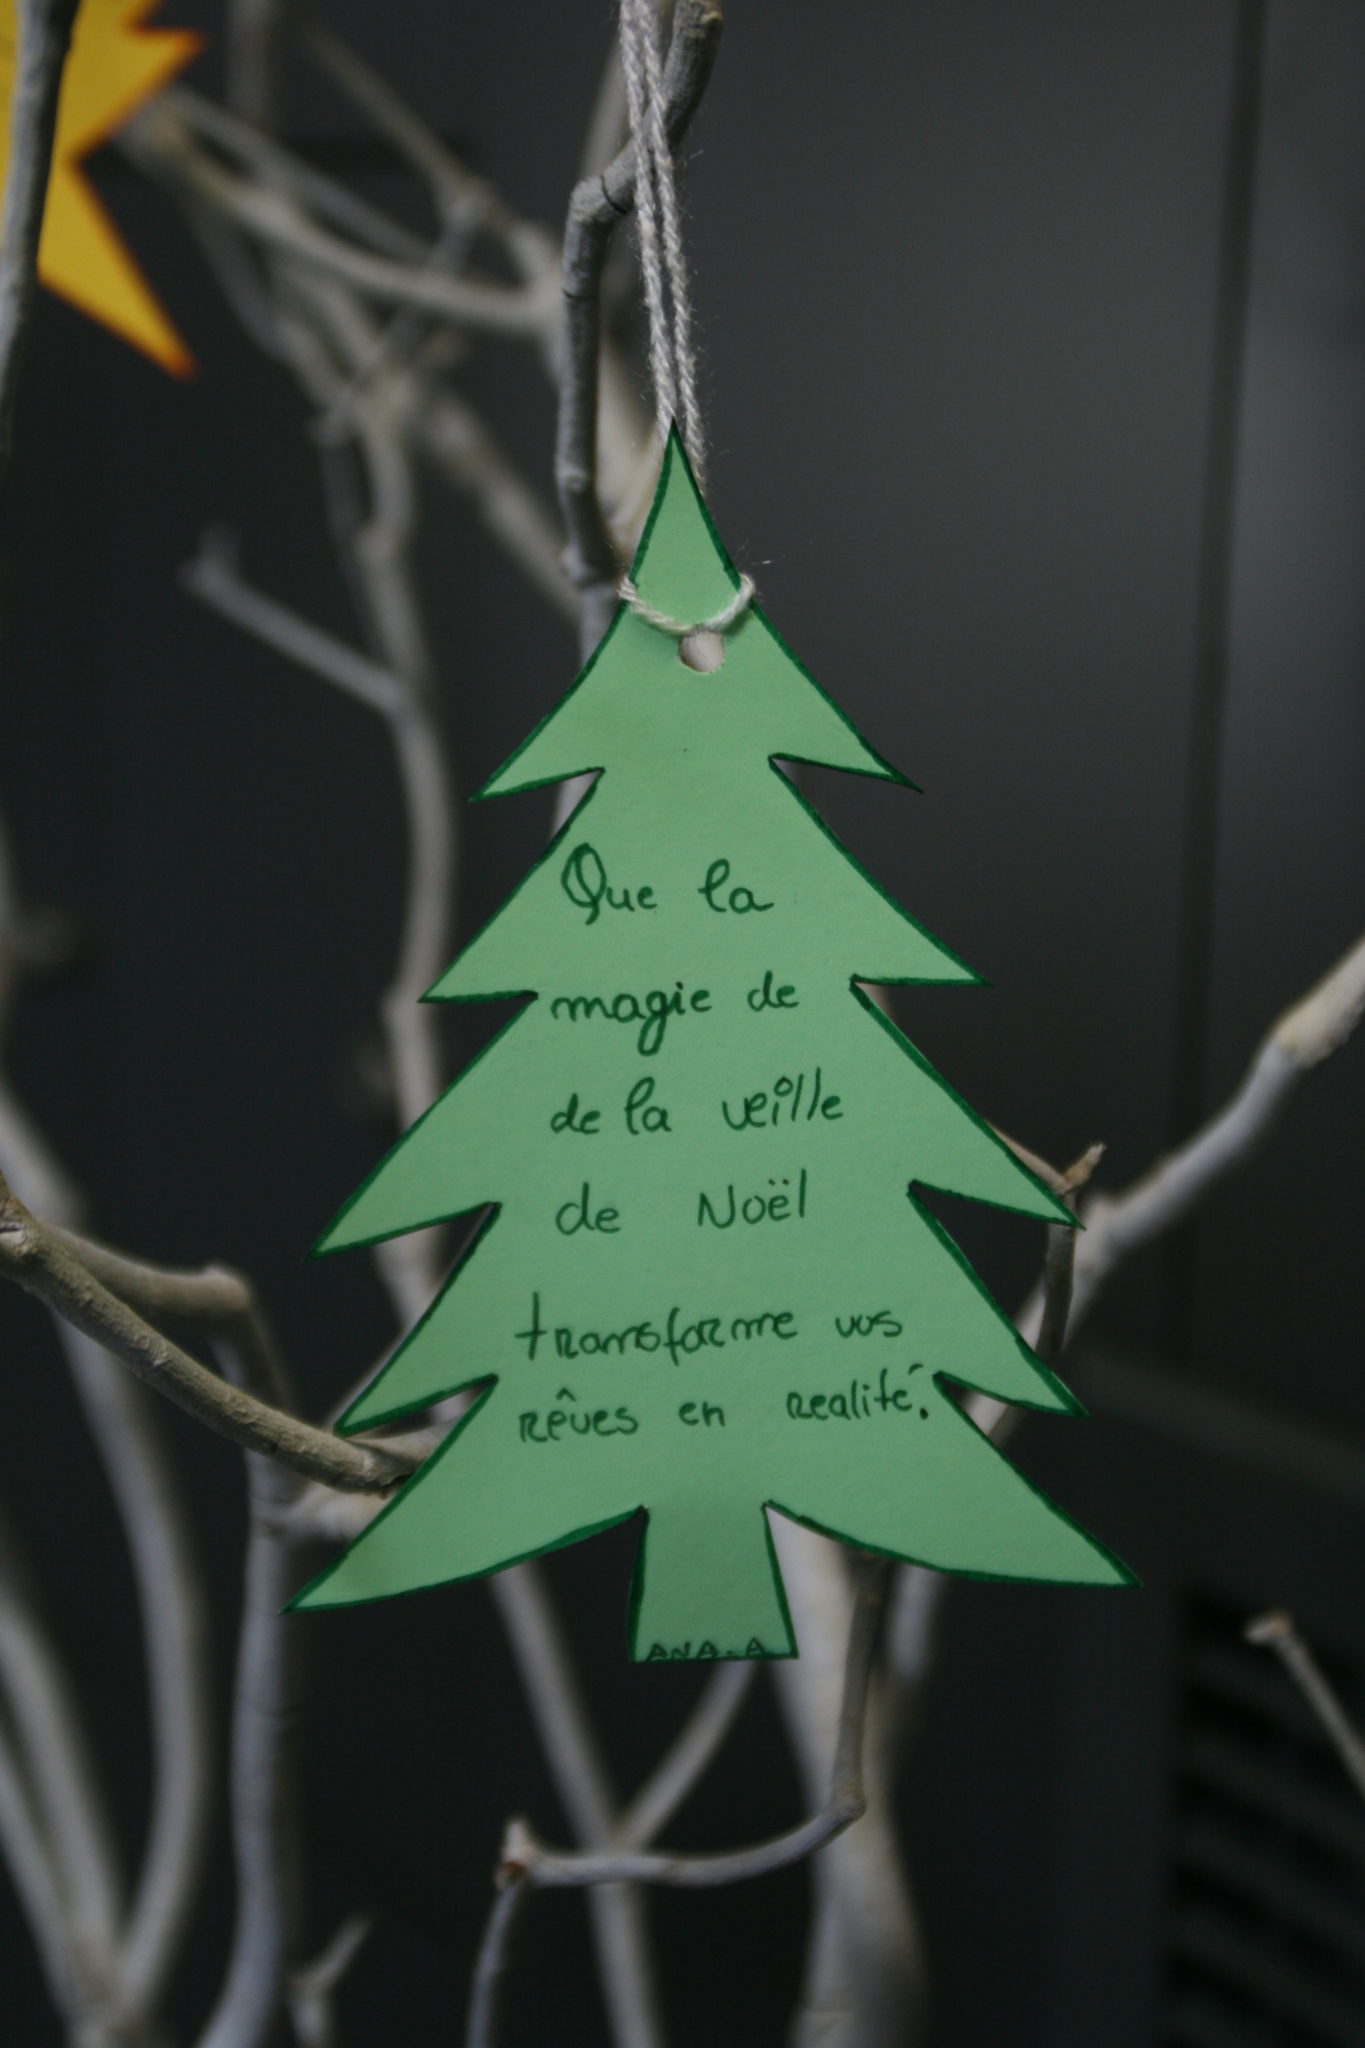 Que la
magie de
de la veille
de Noël
transforme vos
rêves en realité.
ANA-A